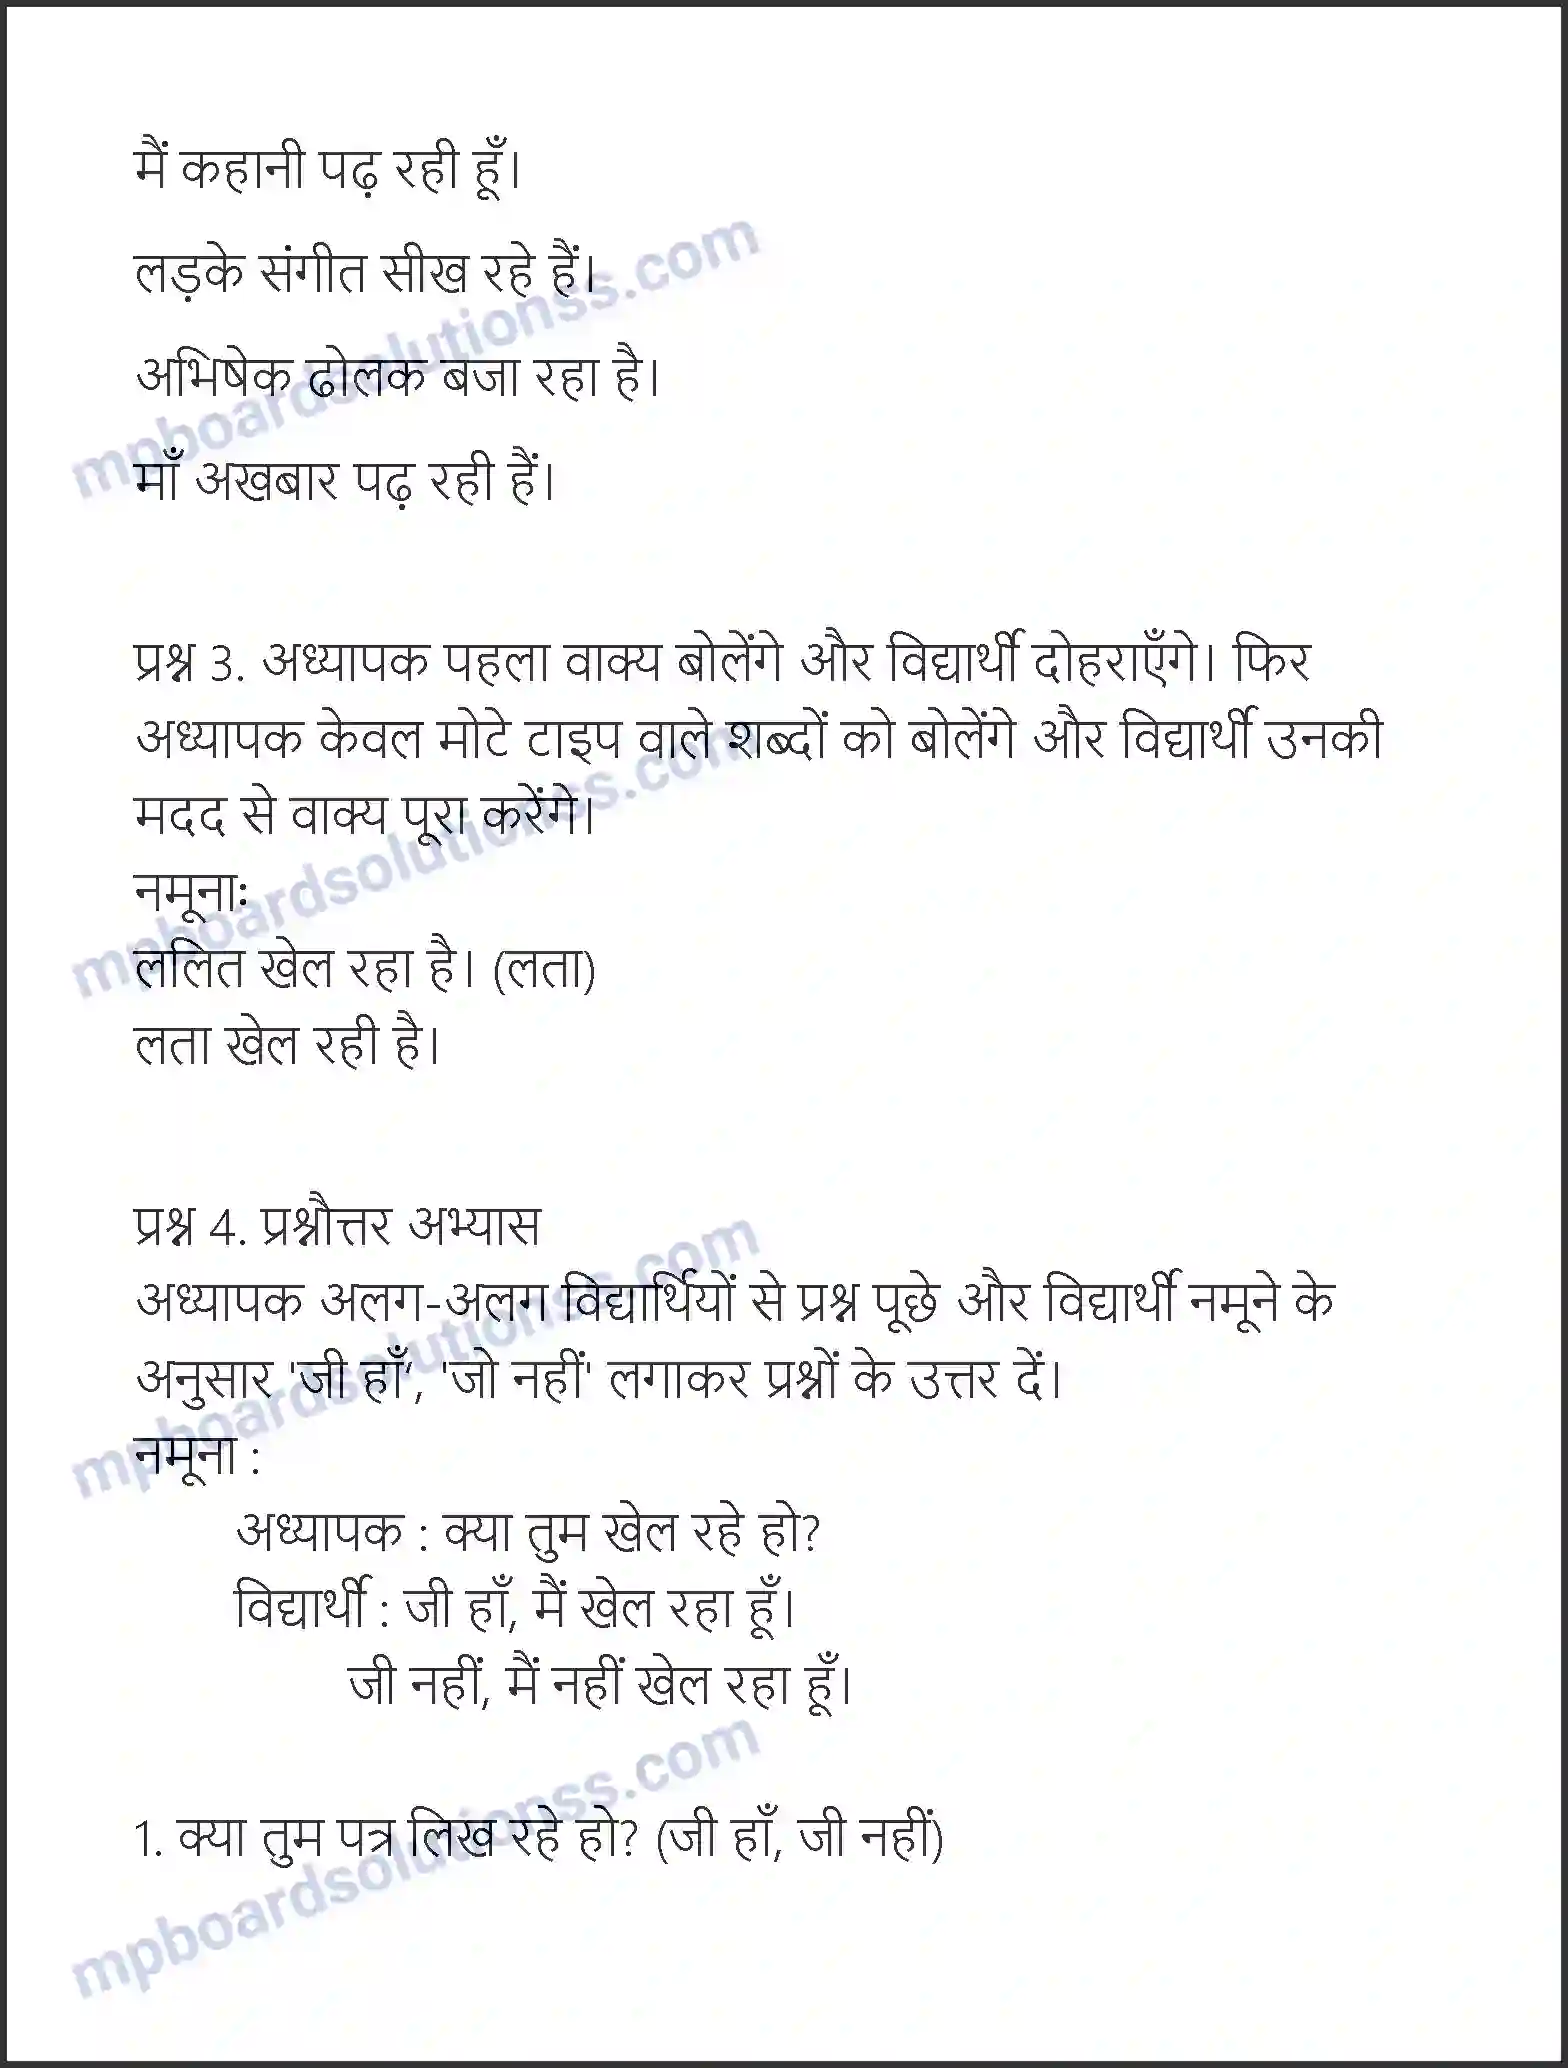 मैं कहानी पढ़ रही हूँ।
लड़के संगीत सीख रहे हैं।
अभिषेक ढोलक बजा रहा है।
माँ अखबार पढ़ रही हैं।
mpboardsolutionss.com
प्रश्न 3. अध्यापक पहला वाक्य बोलेंगे और विद्यार्थी दोहराएँगे। फिर
अध्यापक केवल मोटे टाइप वाले शब्दों को बोलेंगे और विद्यार्थी उनकी
मदद से वाक्य पूरा करेंगे।
नमूनाः
ललित खेल रहा है। (लता)
लता खेल रही है।
mpboardsolutionss.com
प्रश्न 4. प्रश्नौत्तर अभ्यास
अध्यापक अलग-अलग विद्यार्थियों से प्रश्न पूछे और विद्यार्थी नमूने के
अनुसार 'जी हाँ', 'जो नहीं' लगाकर प्रश्नों के उत्तर दें।
नमूना :
mpboardsolutionss.com
अध्यापक : क्या तुम खेल रहे हो?
विद्यार्थी : जी हाँ, मैं खेल रहा हूँ।
जी नहीं, मैं नहीं खेल रहा हूँ।
1. क्या तुम पत्र लिख रहे हो? (जी हाँ, जी नहीं)
mpboardsolutionss.com